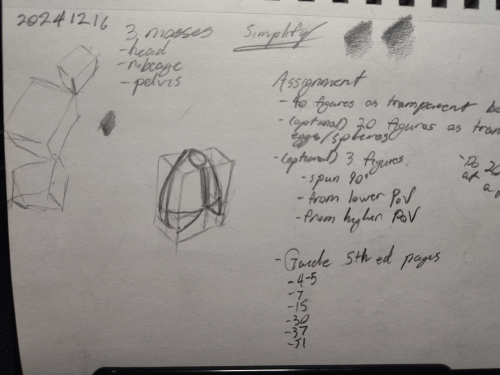 20241216
3 masses
-head
-ribcage
-pelvis
Simplify
Assignment
-40 figures as transparent
-(optional) 20 figures as
eggs/spheres
-(optional) 3 figures
-spun 90°
-from lower PoV
-from higher PoV
-Guide pages
-4-5
-7
-15
-30
-37